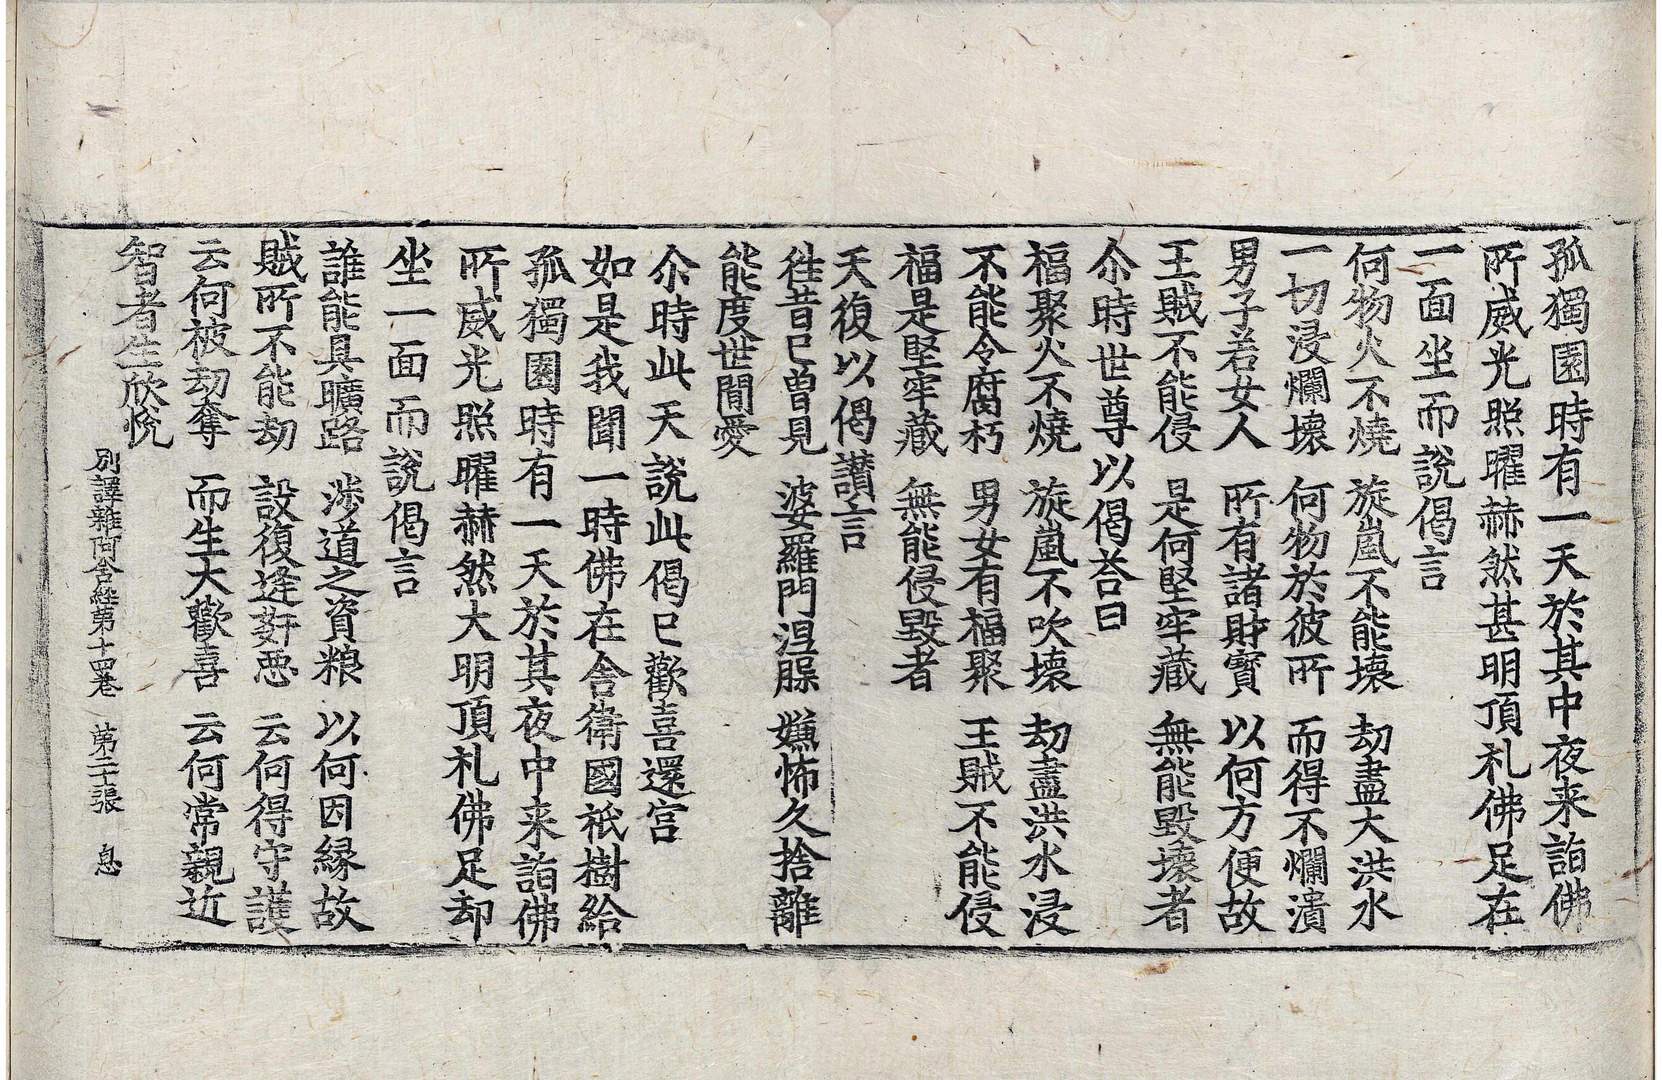 孤獨園時有一天於其中夜来詣佛
所威光照曜赫然甚明頂礼佛足在
一面坐而說偈言
何物火不燒　旋嵐不能壞　劫盡大洪水
一切浸爛壞　何物於彼所　而得不爛潰
男子若女人　所有諸財寶　以何方便故
王賊不能侵　是何堅牢藏　無能毀壞者
尒時世尊以偈荅曰
福聚火不燒　旋嵐不吹壞　劫盡洪水浸
不能令腐朽　男女有福聚　王賊不能侵
福是堅牢藏　無能侵毀者
天復以偈讃言
徃昔已曽見　婆羅門涅䐈　嫌怖久捨離
能度世間愛
尒時此天說此偈已歡喜還宫
如是我聞一時佛在舎衛國祇樹給
孤獨園時有一天於其夜中来詣佛
所威光照曜赫然大明頂礼佛足却
坐一面而說偈言
誰能具曠路　渉道之資粮　以何因縁故
賊所不能劫　設復逢姧惡　云何得守護
云何被劫奪　而生大歡喜　云何常親近
智者生欣悅
別譯雜阿含經第十四卷　第二十張　息